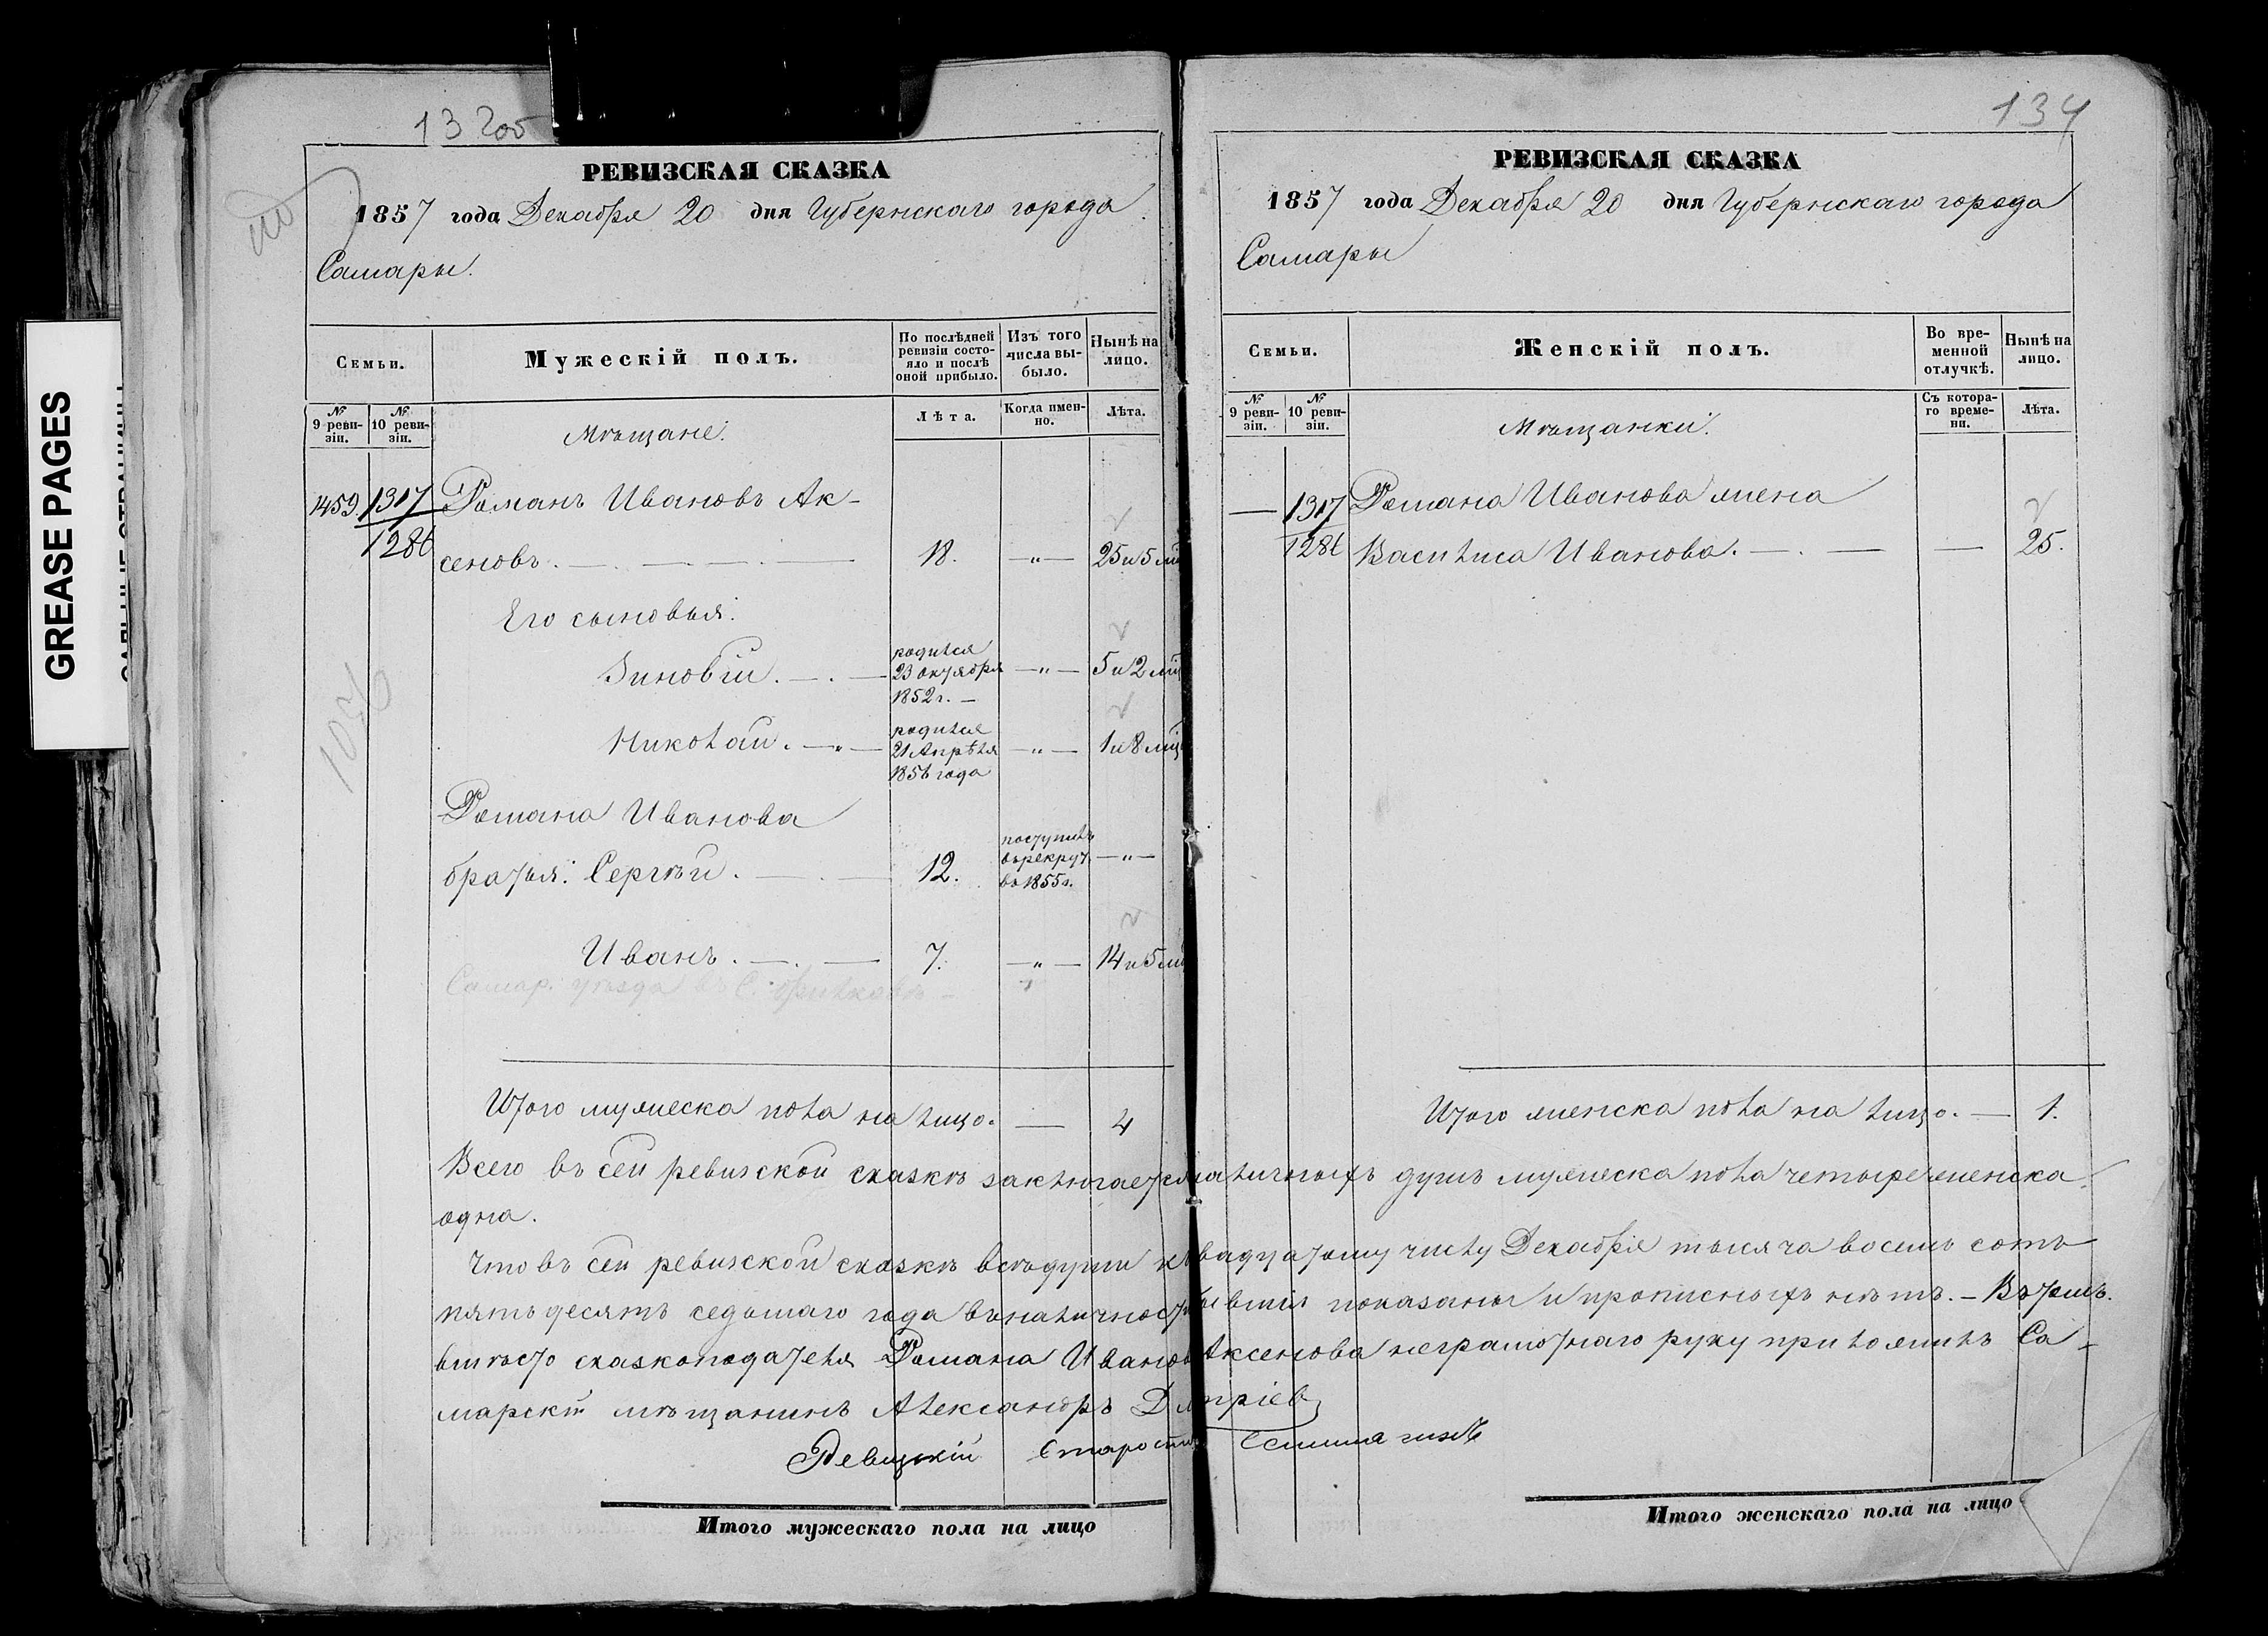 GREASE PAGES
13 200
РЕВИЗСКАЯ СКАЗКА
1857 года Декабря 20 дня Губернскаго города
Самары.
Семьи.
Мужескій полъ.
По послѣдней ревизіи состояло и послѣ оной прибыло.
Изъ того числа выбыло.
Нынѣ на лицо.
№ 9 ревизіи.
№ 10 ревизіи.
Мѣщане.
Лѣта.
Когда именно.
Лѣта.
459. 1317 Романъ Ивановъ Ак-
1286 сеновъ. 18. —"— 25 и 5 мц
Его сыновья:
Зиновій. родился 23 октября 1852 г. —"— 5 и 2 мц
Николай. родился 21 Апрѣля 1856 года —"— 1 и 8 мц
1036
Романа Иванова
братья: Сергѣй. 12. поступилъ въ рекрут. въ 1855 г. —"—
Иванъ. 7. —"— 14 и 5 мц
Самар. уѣзда въ С.
Итого мужеска пола на лицо. — 4
134
РЕВИЗСКАЯ СКАЗКА
1857 года Декабря 20 дня Губернскаго города
Самары
Семьи.
Женскій полъ.
Во временной отлучкѣ.
Нынѣ на лицо.
№ 9 ревизіи.
№ 10 ревизіи.
Мѣщанки.
Съ котораго времени.
Лѣта.
— 1317 Романа Иванова жена
1286 Василиса Иванова. — 25.
Итого женска пола на лицо. — 1.
Всего въ сей ревизской сказкѣ заключается наличныхъ душъ мужеска пола четыре женска
одна.
Что въ сей ревизской сказкѣ всѣ души къ двадцатому числу Декабря тысяча восемь сотъ
пятьдесятъ седьмаго года въ наличности бывшія показаны и прописныхъ нѣтъ. — Въ томъ.
вмѣсто сказкоподателя Романа Иванова Аксенова неграмотнаго руку приложилъ Са-
марскій мѣщанинъ Александръ Дмитріев
Ревизскій Староста
Итого мужескаго пола на лицо
Итого женскаго пола на лицо